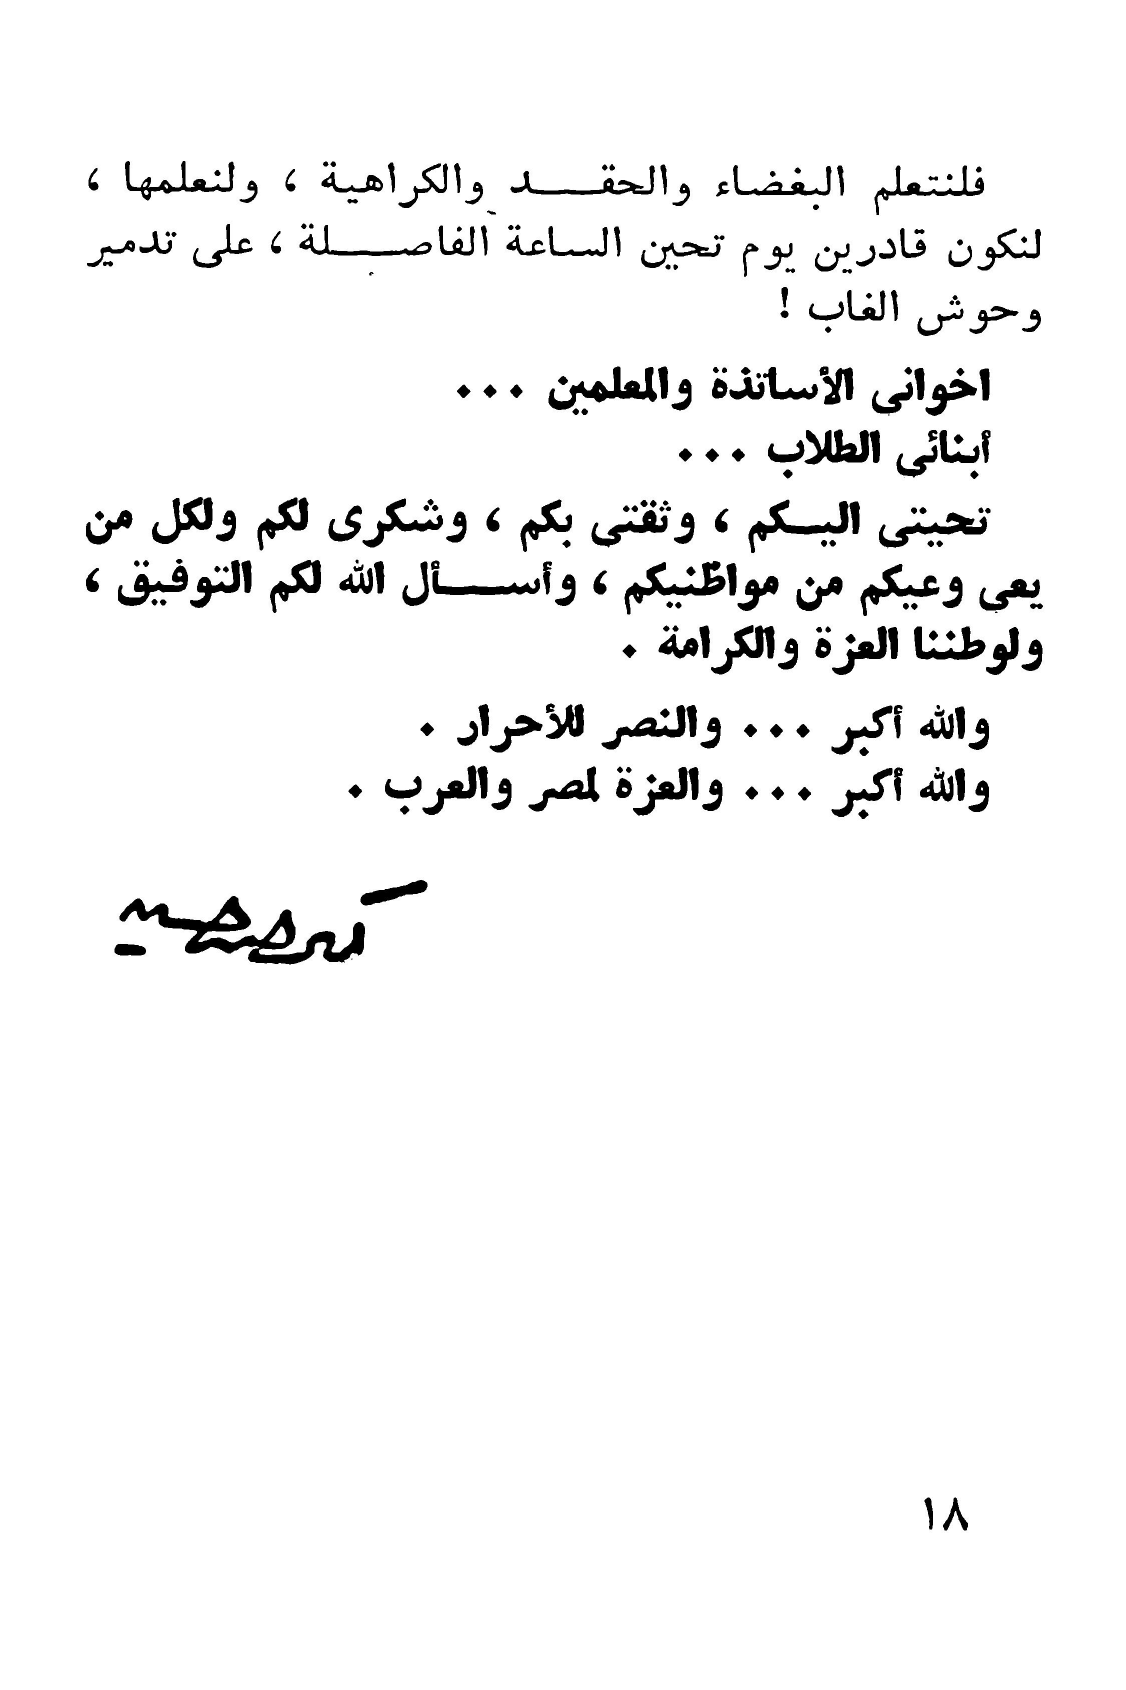 فلنتعلم البغضاء والحقد والكراهية ، ولنعلمها ،
لنكون قادرين يوم تحين الساعة الفاصلة ، على تدمير
وحوش الغاب !
اخوانى الأساتذة والمعلمين ...
أبنائى الطلاب ...
تحيتى اليكم ، وثقتى بكم ، وشكرى لكم ولكل من
يعى وعيكم من مواطنيكم ، وأسأل الله لكم التوفيق ،
ولوطننا العزة والكرامة .
والله أكبر ... والنصر للأحرار .
والله أكبر ... والعزة لمصر والعرب .
١٨